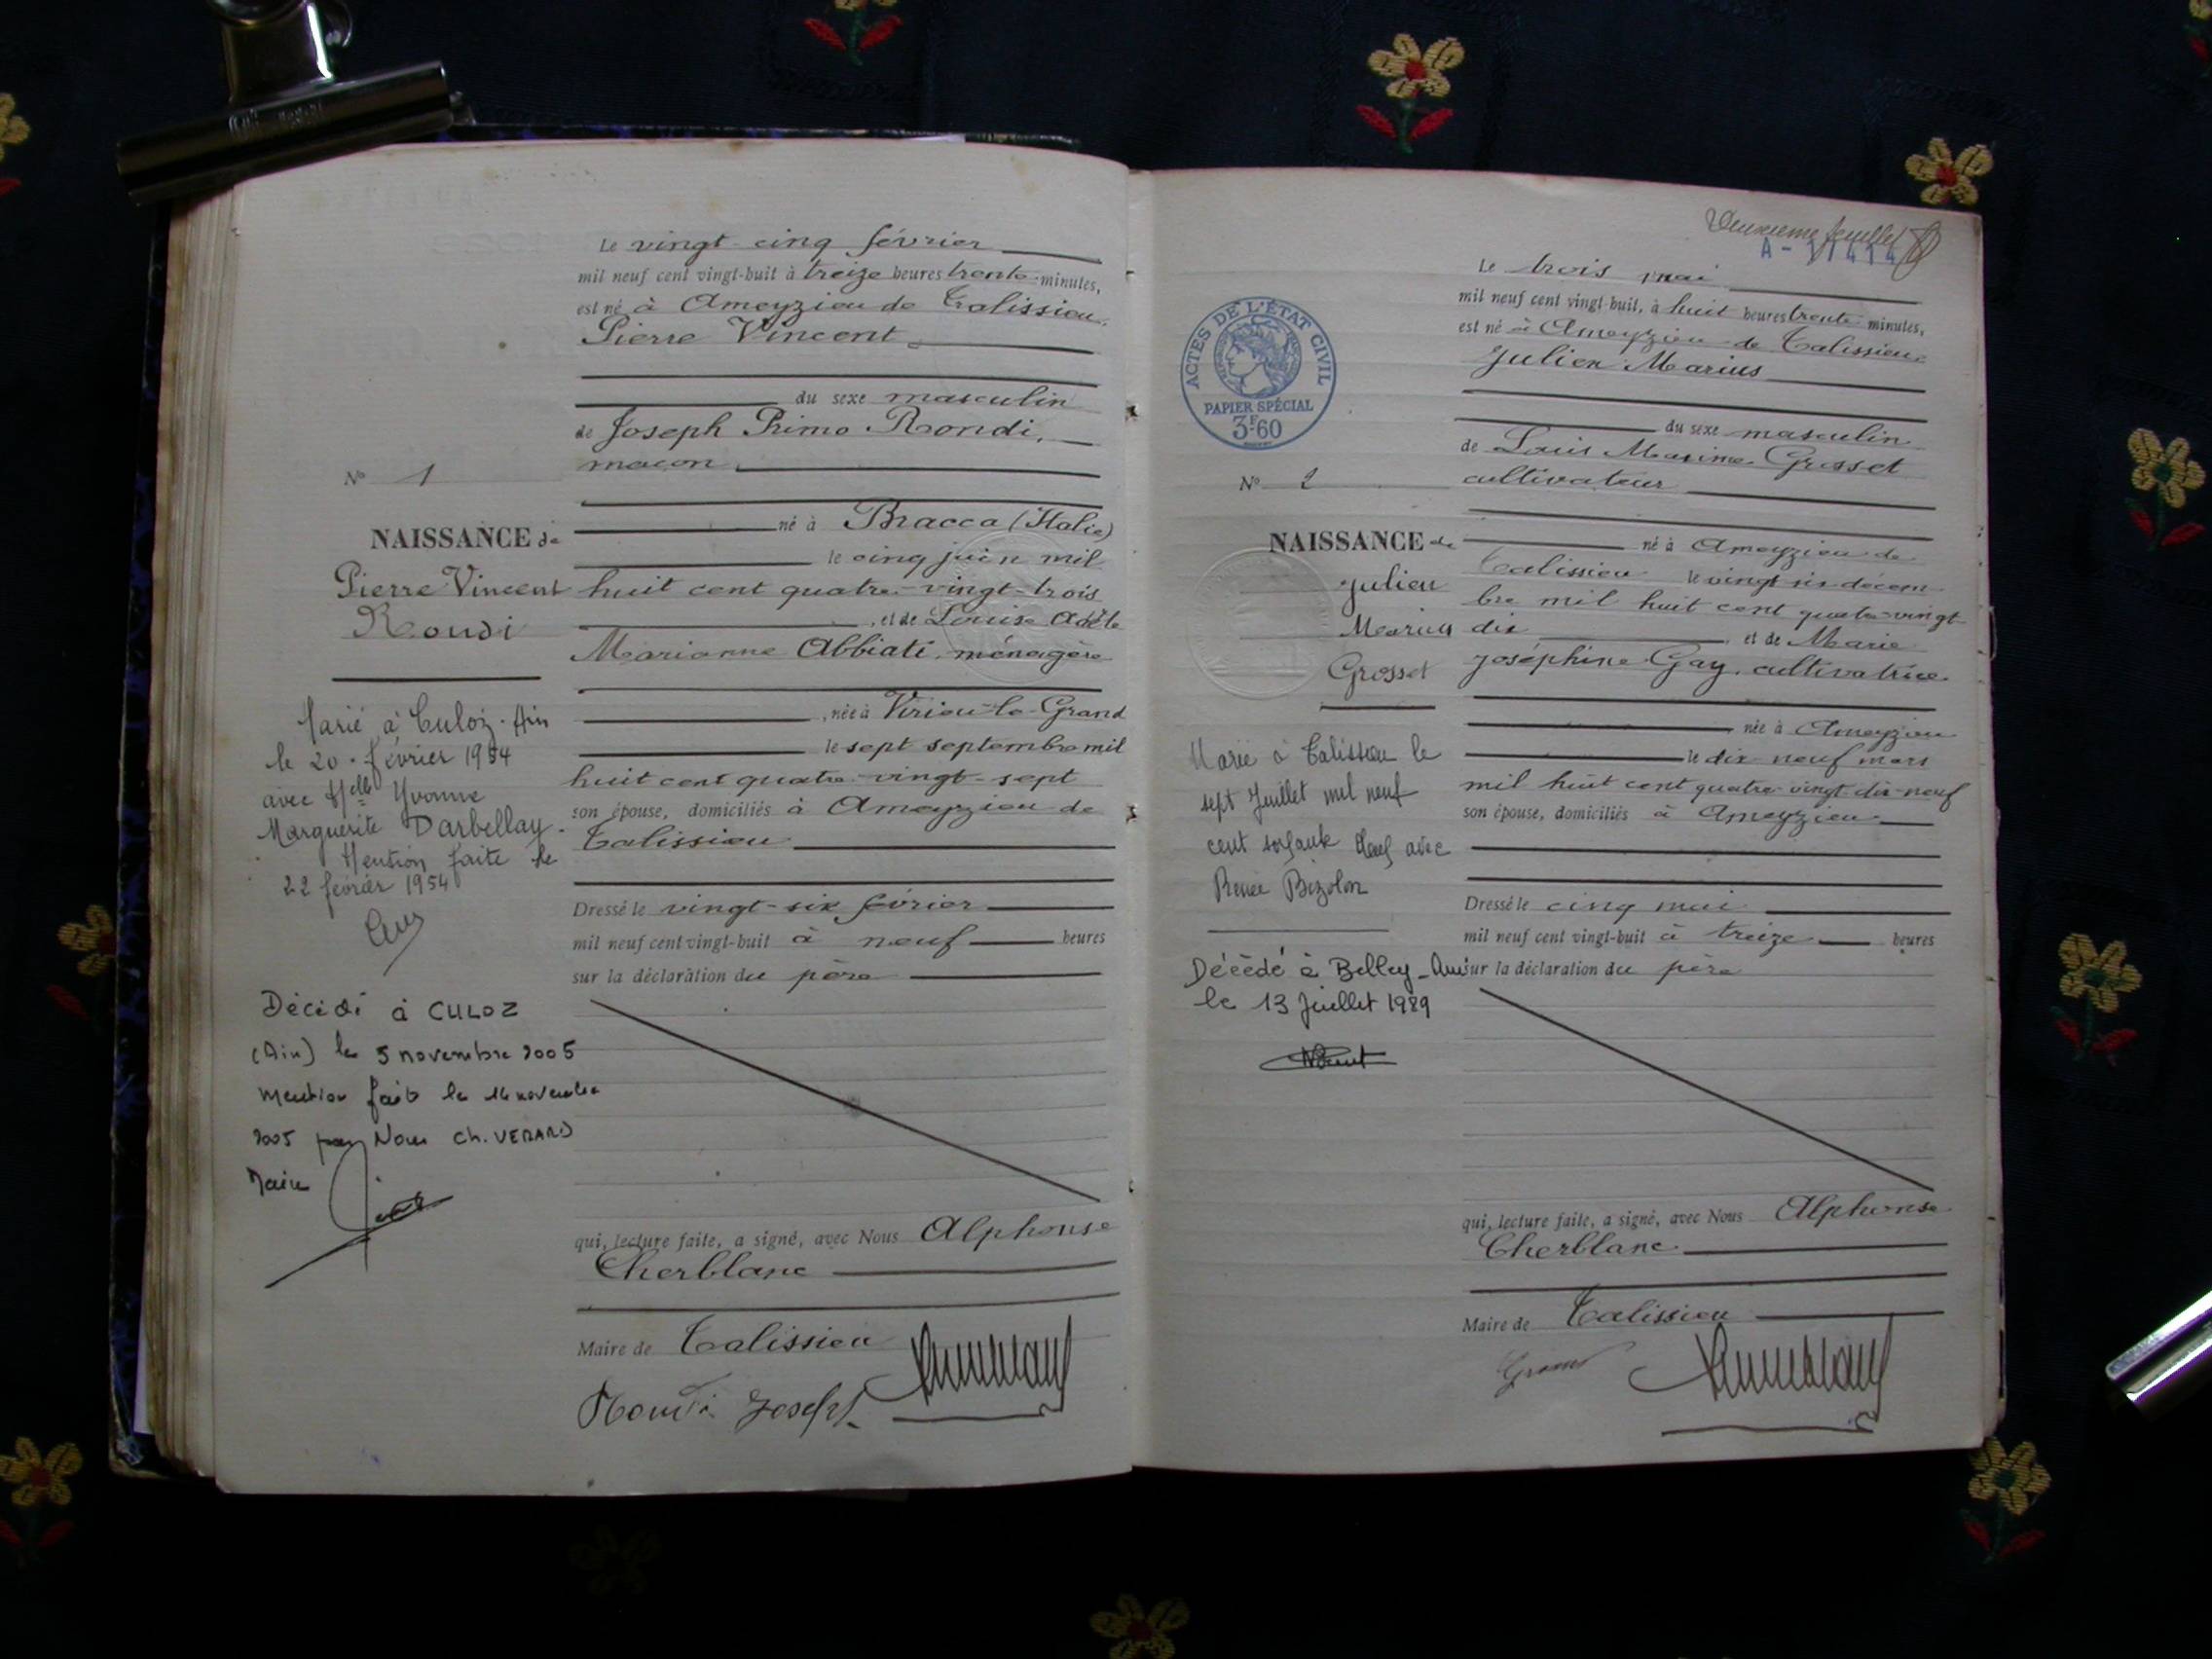 Le vingt-cinq février
mil neuf cent vingt-huit à treize heures trente minutes,
est né à Ameyzieu de Talissieu,
Pierre Vincent
du sexe masculin
de Joseph Primo Rondi,
maçon
N° 1
né à Bracca (Italie)
NAISSANCE de
le cinq juin mil
Pierre Vincent
huit cent quatre-vingt-trois
Rondi
, et de Louise Adèle
Marianne Abbiati, ménagère
, née à Virieu-le-Grand
le sept septembre mil
huit cent quatre-vingt-sept
son épouse, domiciliés à Ameyzieu de
Talissieu
Marié à Culoz - Ain
le 20 février 1954
avec Melle Yvonne
Marguerite Darbellay.
Mention faite le
22 février 1954
Dressé le vingt-six février
mil neuf cent vingt-huit à neuf heures
sur la déclaration du père
Décédé à CULOZ
(Ain) le 5 novembre 2005
mention faite le 14 novembre
2005 par Nous Ch. VERARD
Maire
qui, lecture faite, a signé, avec Nous Alphonse
Cherblanc
Maire de Talissieu
Rondi Joseph
Deuxième feuillet
Le trois mai
mil neuf cent vingt-huit, à huit heures trente minutes,
est né à Ameyzieu de Talissieu
Julien Marius
ACTES DE L'ÉTAT CIVIL
PAPIER SPÉCIAL
3F60
du sexe masculin
de Louis Maxime Grosset
cultivateur
N° 2
NAISSANCE de
né à Ameyzieu de
Talissieu le vingt six décem-
Julien
bre mil huit cent quatre-vingt
Marius
dix et de Marie
Grosset
Joséphine Gay, cultivatrice
née à Ameyzieu
le dix-neuf mars
mil huit cent quatre-vingt-dix-neuf
son épouse, domiciliés à Ameyzieu
Marié à Talissieu le
sept Juillet mil neuf
cent soixante neuf avec
Renée Bizolon
Dressé le cinq mai
mil neuf cent vingt-huit à treize heures
sur la déclaration du père
Décédé à Belley - Ain
le 13 Juillet 1989
qui, lecture faite, a signé, avec Nous Alphonse
Cherblanc
Maire de Talissieu